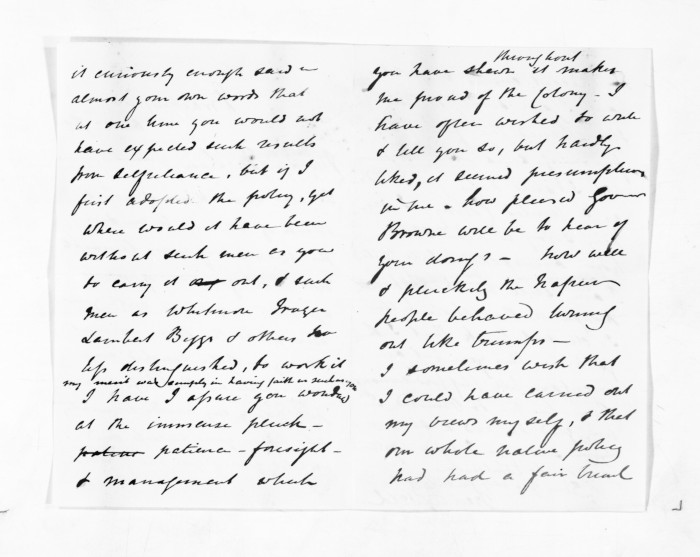 it curiously enough said in
almost your own words that
at one time you would not
have expected such results
from selfreliance, but if I
first adopted the policy, yet
where would it have been
without such men as you
to carry it out out, & such
men as Whitmore Fraser
Lambert Biggs & others no
less distinguished, to work it
my merit was simply in having faith in such as you
I have I assure you wondered
at the immense pluck -
patience patience - foresight -
& management which
throughout
you have shewn it makes
me proud of the Colony - I
have often wished to write
& tell you so, but hardly
liked, it seemed presumption
in me - how pleased Governor
Browne will be to hear of
your doings - how well
& pluckily the Napier
people behaved turning
out like trumps -
I sometimes wish that
I could have carried out
my views myself, & that
our whole native policy
had had a fair trial